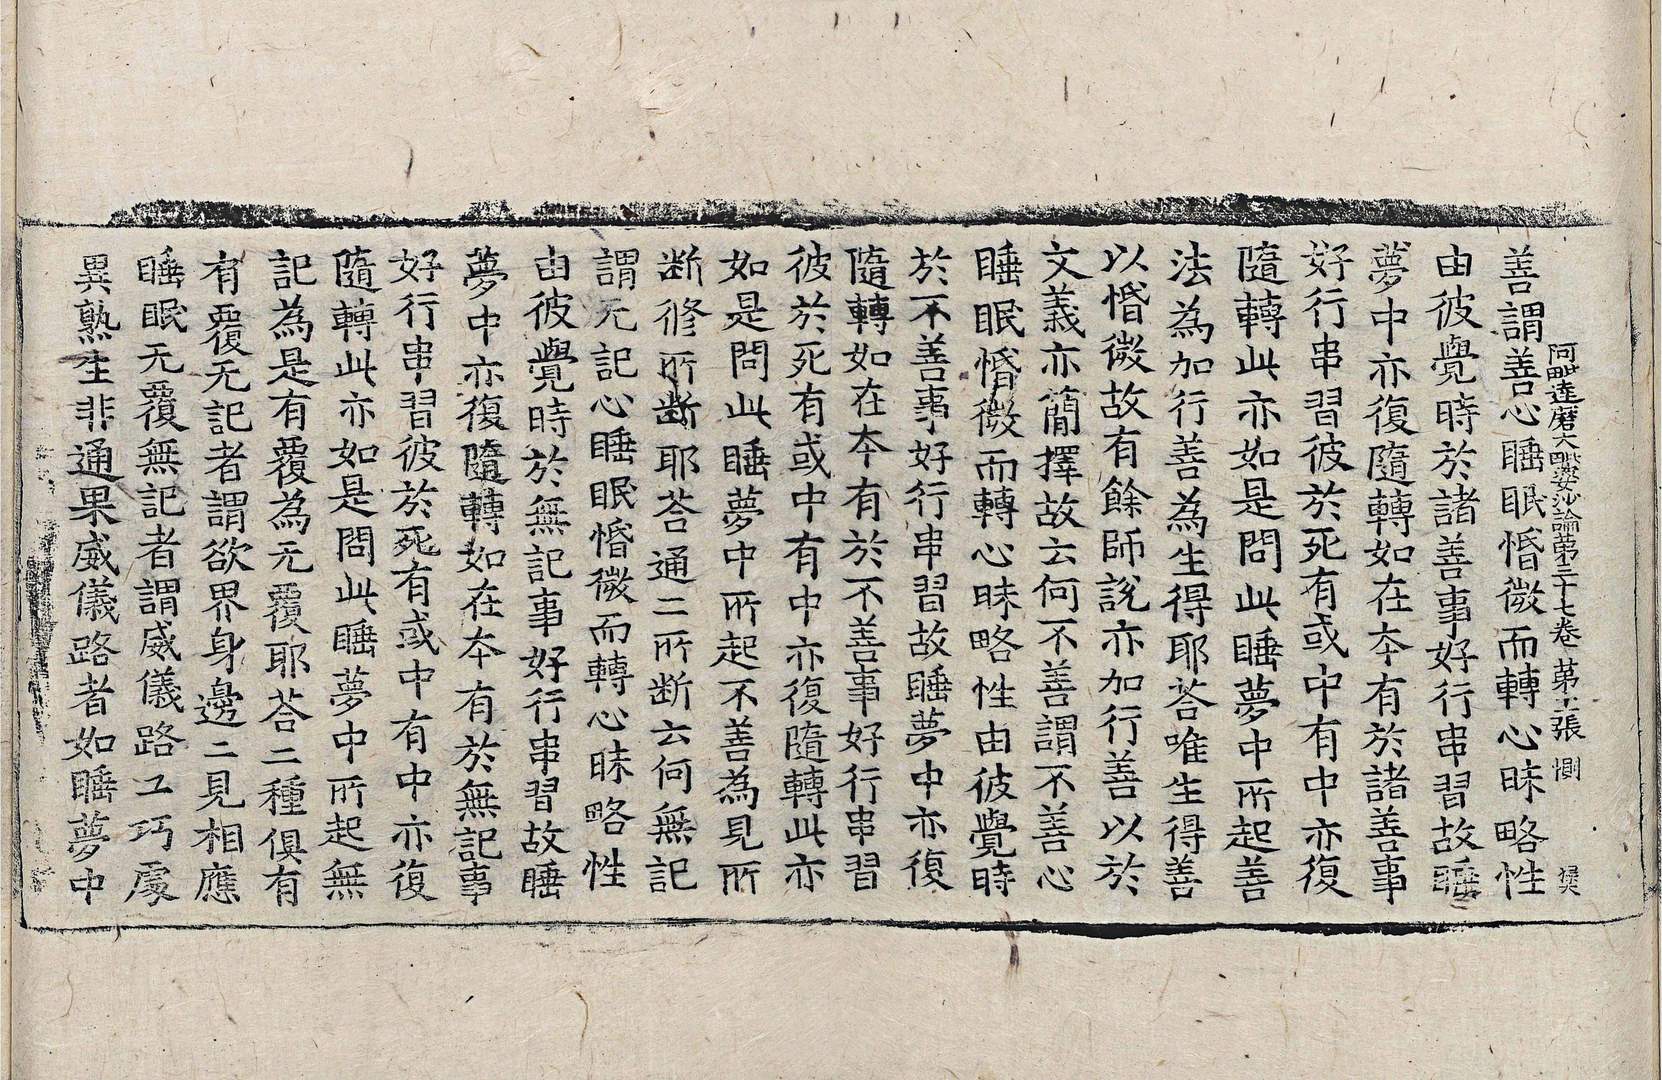 阿毗達磨大毗婆沙論苐三十七卷 苐十一張 惻
善謂善心睡眠惛微而轉心昧略性
由彼覺時於諸善事好行串習故睡
夢中亦復隨轉如在夲有於諸善事
好行串習彼於死有或中有中亦復
隨轉此亦如是問此睡夢中所起善
法為加行善為生得耶荅唯生得善
以惛微故有餘師說亦加行善以於
文義亦簡擇故云何不善謂不善心
睡眠惛微而轉心昧略性由彼覺時
於不善事好行串習故睡夢中亦復
隨轉如在夲有於不善事好行串習
彼於死有或中有中亦復隨轉此亦
如是問此睡夢中所起不善為見所
断修所断耶荅通二所断云何無記
謂无記心睡眠惛微而轉心昧略性
由彼覺時於無記事好行串習故睡
夢中亦復隨轉如在夲有於無記事
好行串習彼於死有或中有中亦復
隨轉此亦如是問此睡夢中所起無
記為是有覆為无覆耶荅二種俱有
有覆无記者謂欲界身邊二見相應
睡眠无覆無記者謂威儀路工巧處
異熟生非通果威儀路者如睡夢中